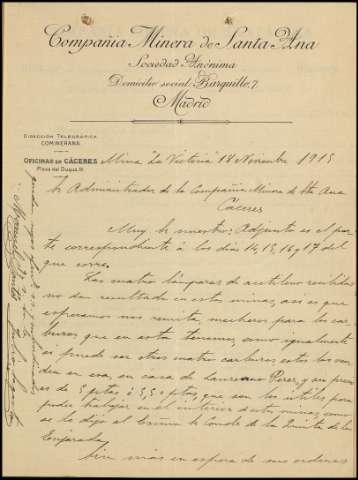 Compañia Minera de Santa Ana
Sociedad Anónima
Domicilio social: Barquillo, 7
Madrid
DIRECCIÓN TELEGRÁFICA
COMINERANA
OFICINAS EN CÁCERES
Plaza del Duque,
Mina "La Victoria" 18 Noviembre 1915
Sr Administrador de la Compañia Minera de Sta Ana
Cáceres
Muy Sr nuestro: Adjunto es el par-
te correspondiente á los dias 14, 15, 16 y 17 del
que corre.
Las cuatro lámparas de acetileno recibidas
no dan resultado en esta minas, asi es que
esperamos nos remita, mecheros para los car-
buros que en esta tenemos, como igualmente
si puede ser otros cuatro carburos estos los ven-
den en esa, en casa de Laureano Perez, y su pre-
es de 5 ptas ó 5,50 ptas, que son los útiles para
poder trabajar en el interior de estas minas, como
se lo dejo al de la
Emparada.
Sin más en espera de sus ordenes